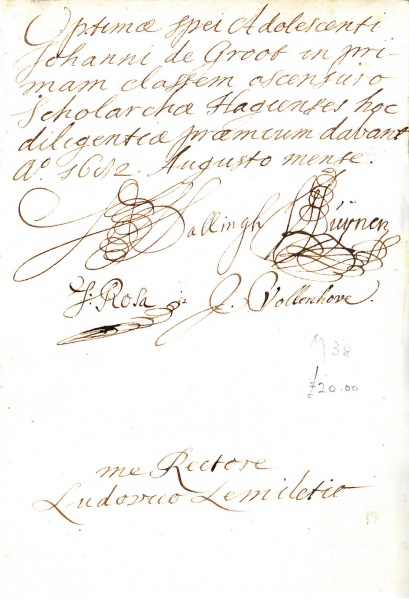 Optimæ spei Adolescenti
Johanni de Groot in pri-
mam classem ascensuro
Scholarchæ Hagienses hoc
diligentiæ præmium dabant
Aº. 1682. Augusto mense.
Hallingh
Buÿnen
J. Rosa
J. Vollenhove.
M 38
£20.00
me Rectore
Ludovico Lemiletio